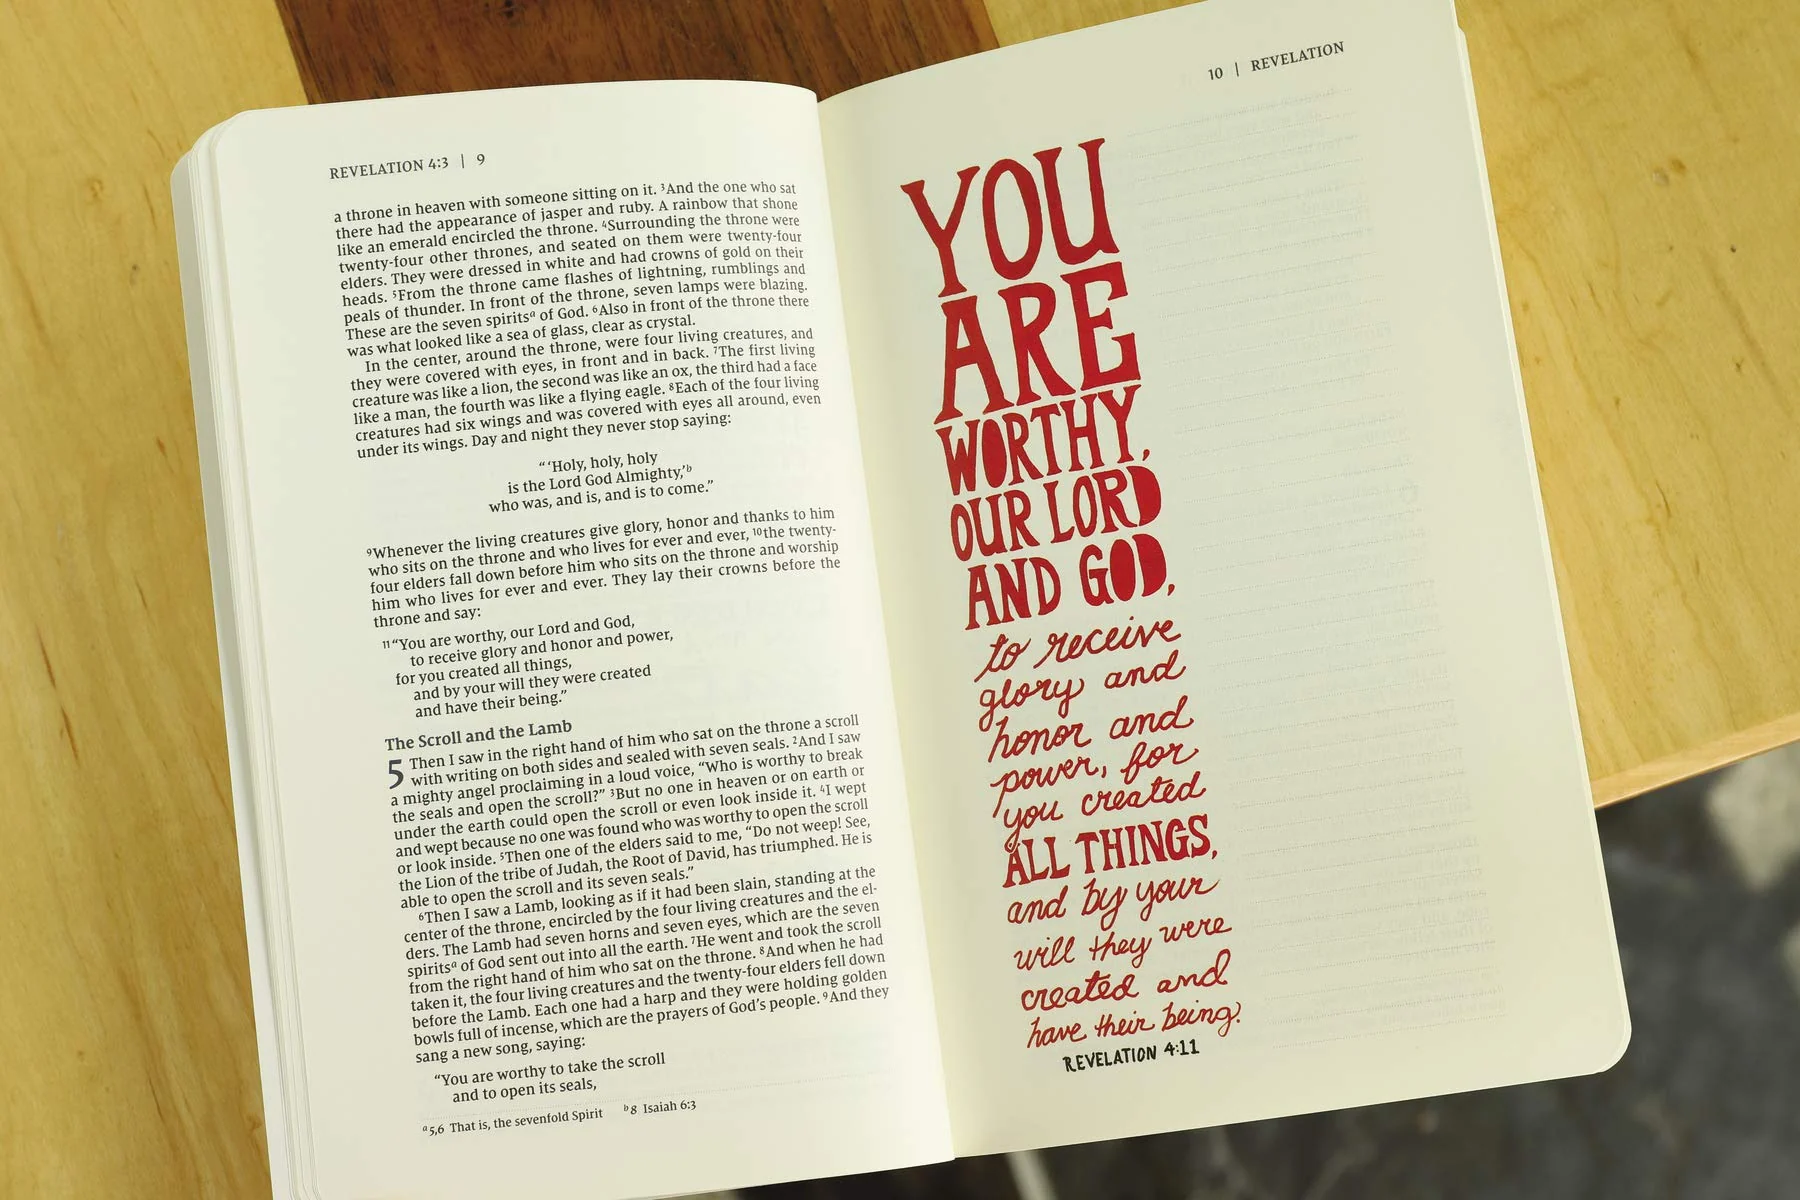 REVELATION 4:3 | 9
a throne in heaven with someone sitting on it. ³And the one who sat
there had the appearance of jasper and ruby. A rainbow that shone
like an emerald encircled the throne. ⁴Surrounding the throne were
twenty-four other thrones, and seated on them were twenty-four
elders. They were dressed in white and had crowns of gold on their
heads. ⁵From the throne came flashes of lightning, rumblings and
peals of thunder. In front of the throne, seven lamps were blazing.
These are the seven spiritsᵃ of God. ⁶Also in front of the throne there
was what looked like a sea of glass, clear as crystal.
In the center, around the throne, were four living creatures, and
they were covered with eyes, in front and in back. ⁷The first living
creature was like a lion, the second was like an ox, the third had a face
like a man, the fourth was like a flying eagle. ⁸Each of the four living
creatures had six wings and was covered with eyes all around, even
under its wings. Day and night they never stop saying:
“‘Holy, holy, holy
is the Lord God Almighty,’ᵇ
who was, and is, and is to come.”
⁹Whenever the living creatures give glory, honor and thanks to him
who sits on the throne and who lives for ever and ever, ¹⁰the twenty-
four elders fall down before him who sits on the throne and worship
him who lives for ever and ever. They lay their crowns before the
throne and say:
¹¹“You are worthy, our Lord and God,
to receive glory and honor and power,
for you created all things,
and by your will they were created
and have their being.”
The Scroll and the Lamb
5 Then I saw in the right hand of him who sat on the throne a scroll
with writing on both sides and sealed with seven seals. ²And I saw
a mighty angel proclaiming in a loud voice, “Who is worthy to break
the seals and open the scroll?” ³But no one in heaven or on earth or
under the earth could open the scroll or even look inside it. ⁴I wept
and wept because no one was found who was worthy to open the scroll
or look inside. ⁵Then one of the elders said to me, “Do not weep! See,
the Lion of the tribe of Judah, the Root of David, has triumphed. He is
able to open the scroll and its seven seals.”
⁶Then I saw a Lamb, looking as if it had been slain, standing at the
center of the throne, encircled by the four living creatures and the el-
ders. The Lamb had seven horns and seven eyes, which are the seven
spiritsᵃ of God sent out into all the earth. ⁷He went and took the scroll
from the right hand of him who sat on the throne. ⁸And when he had
taken it, the four living creatures and the twenty-four elders fell down
before the Lamb. Each one had a harp and they were holding golden
bowls full of incense, which are the prayers of God’s people. ⁹And they
sang a new song, saying:
“You are worthy to take the scroll
and to open its seals,
ᵃ5,6 That is, the sevenfold Spirit ᵇ8 Isaiah 6:3
10 | REVELATION
YOU
ARE
WORTHY,
OUR LORD
AND GOD,
to receive
glory and
honor and
power, for
you created
ALL THINGS,
and by your
will they were
created and
have their being.
REVELATION 4:11